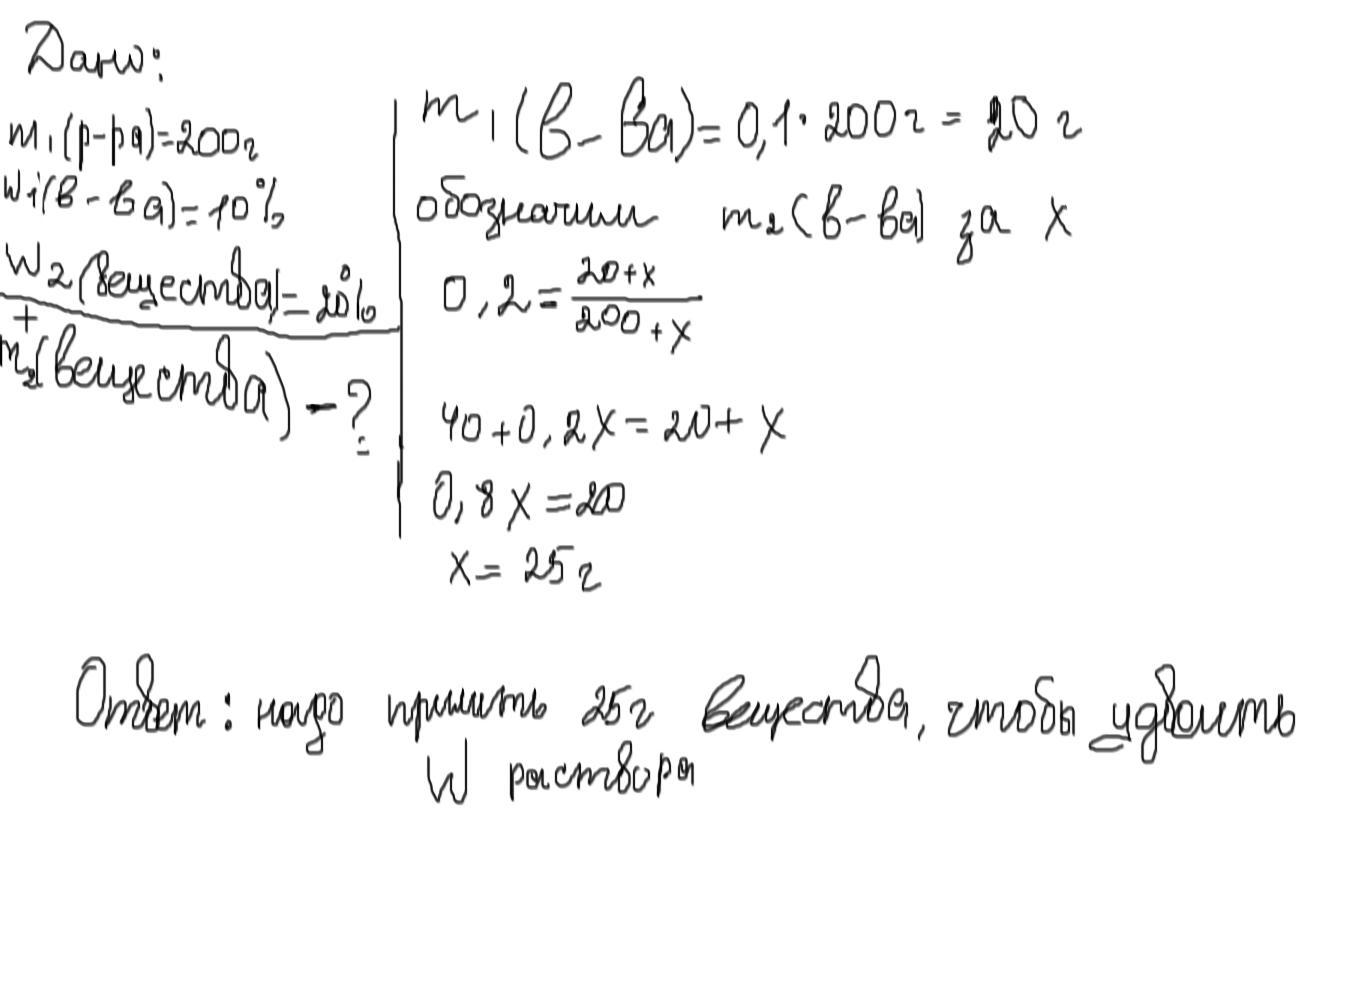 Дано:
m₁(р-ра)=200г
W₁(в-ва)=10%
W₂(вещества)=20%
+
m₂(вещества)-?
m₁(в-ва)=0,1·200г=20г
обозначим m₂(в-ва) за x
0,2=20+x/200+x
40+0,2x=20+x
0,8x=20
x=25г
Ответ: надо прилить 25г вещества, чтобы удвоить
W раствора